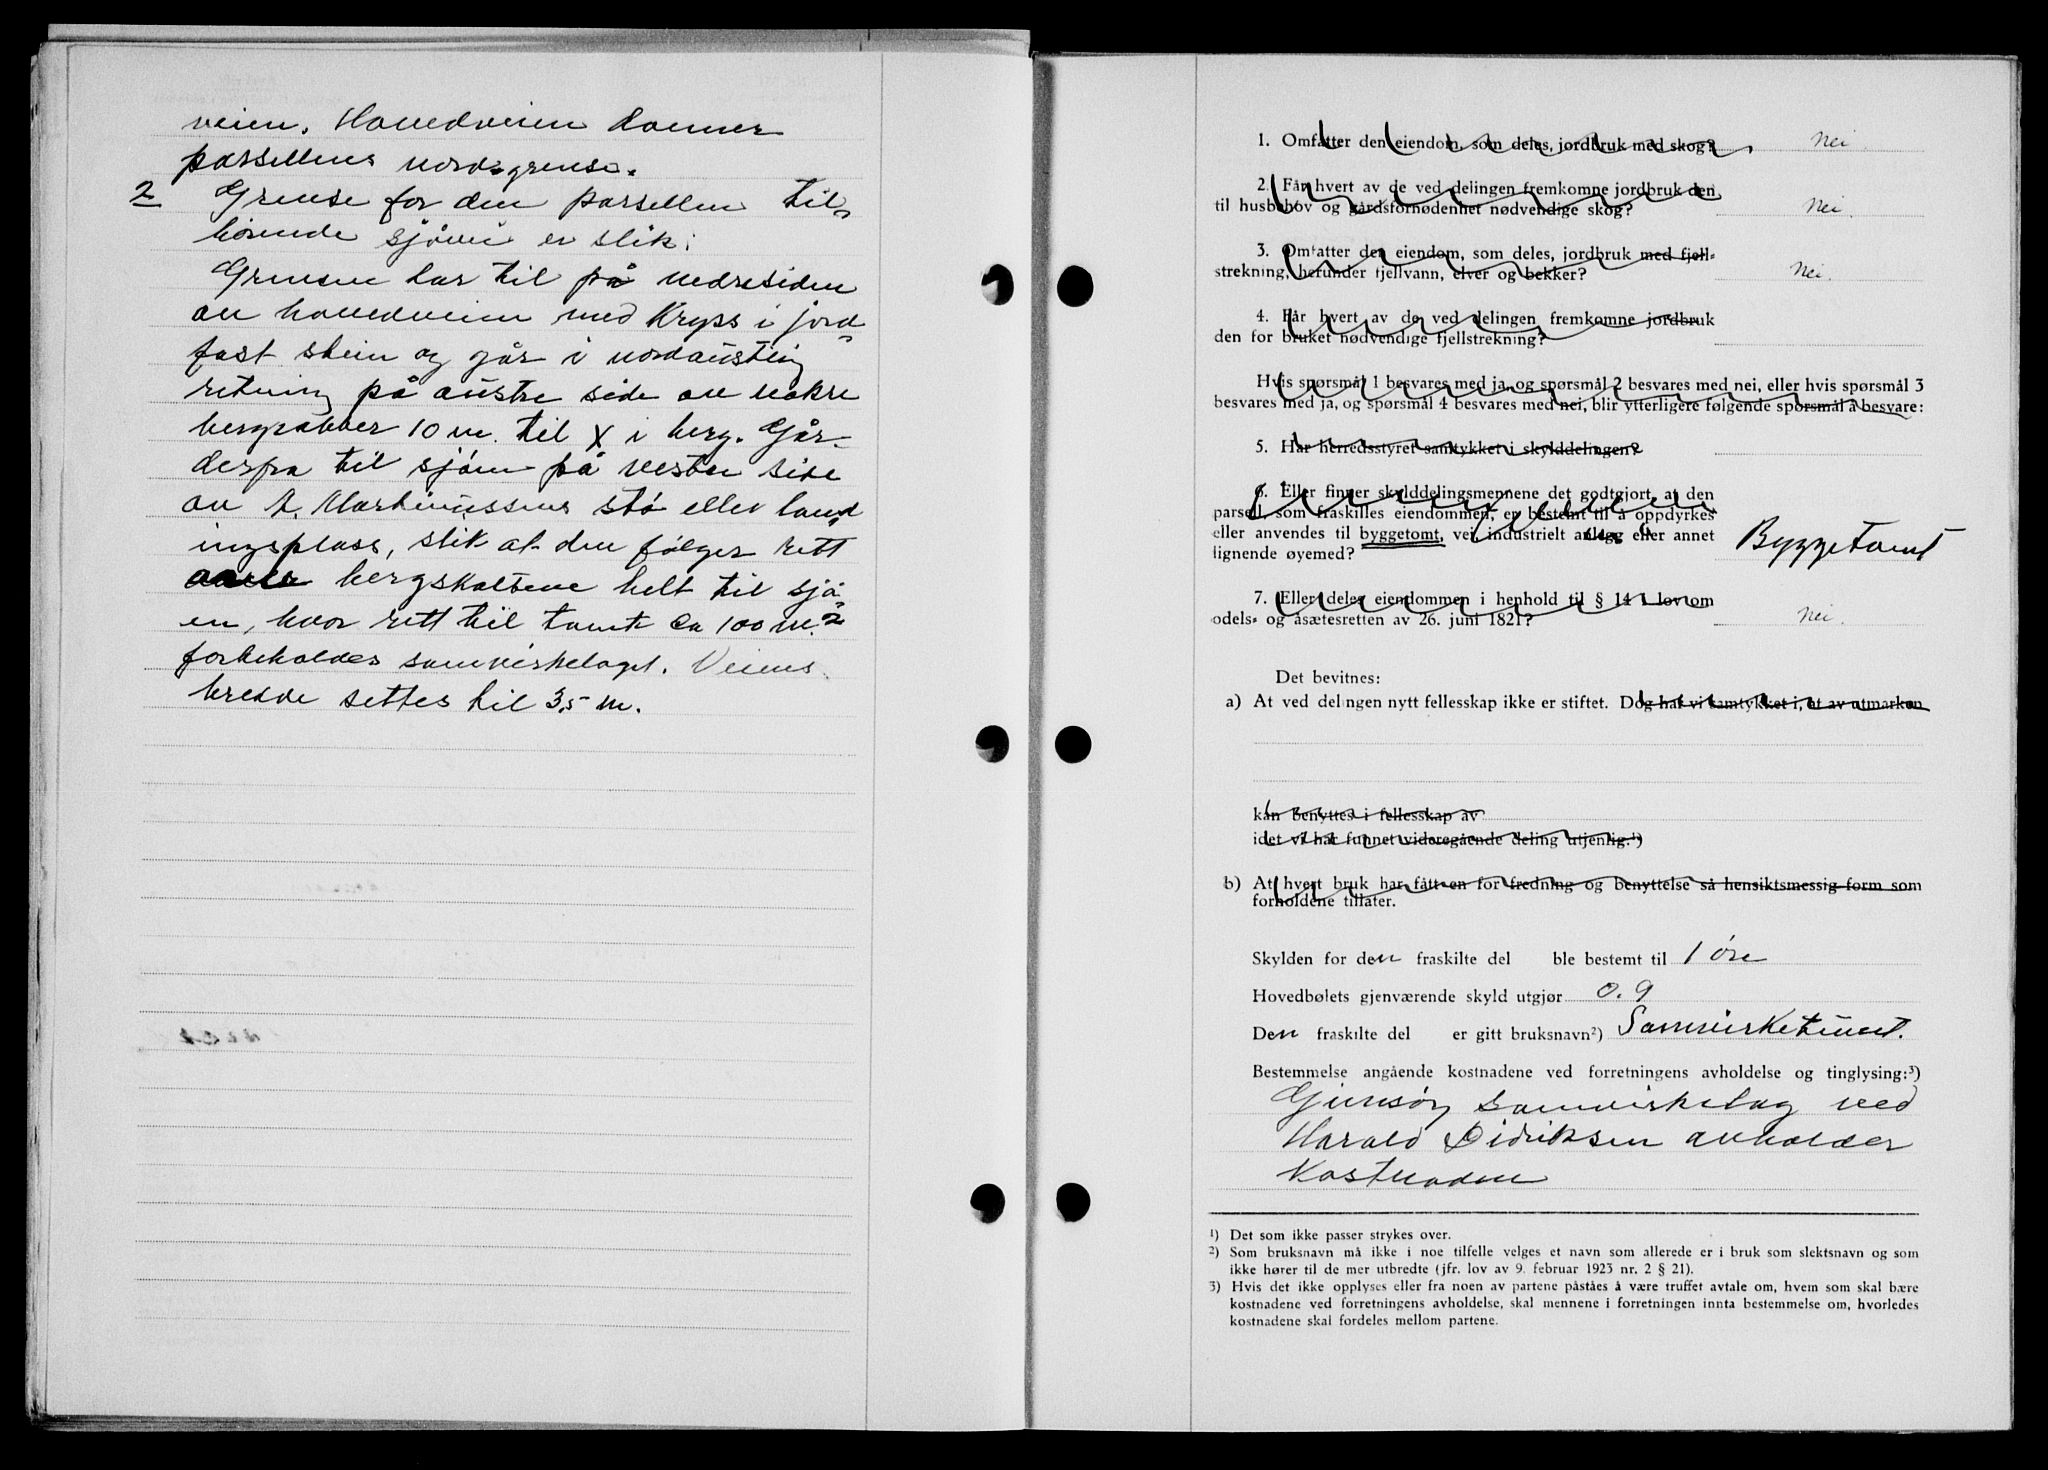 veien. Hovedveien danner
parsellens nordgrense.
2 Grense for den parsellen til-
hørende sjøvei er slik:
Grensen tar til på nedresiden
av hovedveien med kryss i jord-
fast stein og går i nordaustlig
retning på austre side av nokre
bergnabber 10 m. til X i berg. Går
derfra til sjøen på vestre side
av A. Martinussens stø eller land-
ingsplass, slik at den følger rett
over bergskoltene helt til sjø-
en, hvor rett til tomt ca 100 m.²
forbeholdes samvirkelaget. Veiens
bredde settes til 3,5 m.
1. Omfatter den eiendom, som deles, jordbruk med skog? Nei
2. Får hvert av de ved delingen fremkomne jordbruk den
til husbehov og gårdsfornødenhet nødvendige skog? Nei.
3. Omfatter den eiendom, som deles, jordbruk med fjell-
strekning, herunder fjellvann, elver og bekker? Nei.
4. Får hvert av de ved delingen fremkomne jordbruk
den for bruket nødvendige fjellstrekning?
Hvis spørsmål 1 besvares med ja, og spørsmål 2 besvares med nei, eller hvis spørsmål 3
besvares med ja, og spørsmål 4 besvares med nei, blir ytterligere følgende spørsmål å besvare:
5. Har herredsstyret samtykket i skylddelingen?
6. Eller finner skylddelingsmennene det godtgjort, at den
parsell, som fraskilles eiendommen, er bestemt til å oppdyrkes
eller anvendes til byggetomt, vei, industrielt anlegg eller annet
lignende øyemed? Byggetomt
7. Eller deles eiendommen i henhold til § 14 i lov om
odels- og åsætesretten av 26. juni 1821? Nei.
Det bevitnes:
a) At ved delingen nytt fellesskap ikke er stiftet. Dog har vi samtykket i, at av utmarken
kan benyttes i fellesskap av
idet vi har funnet videregående deling utjenlig.¹)
b) At hvert bruk har fått en for fredning og benyttelse så hensiktsmessig form som
forholdene tillater.
Skylden for den fraskilte del ble bestemt til 1 øre
Hovedbølets gjenværende skyld utgjør 0.9
Den fraskilte del er gitt bruksnavn²) Samvirketunet.
Bestemmelse angående kostnadene ved forretningens avholdelse og tinglysing:³)
Gimsøy samvirkelag ved
Harald Didriksen avholder
kostnaden
¹) Det som ikke passer strykes over.
²) Som bruksnavn må ikke i noe tilfelle velges et navn som allerede er i bruk som slektsnavn og som
ikke hører til de mer utbredte (jfr. lov av 9. februar 1923 nr. 2 § 21).
³) Hvis det ikke opplyses eller fra noen av partene påståes å være truffet avtale om, hvem som skal bære
kostnadene ved forretningens avholdelse, skal mennene i forretningen innta bestemmelse om, hvorledes
kostnadene skal fordeles mellom partene.